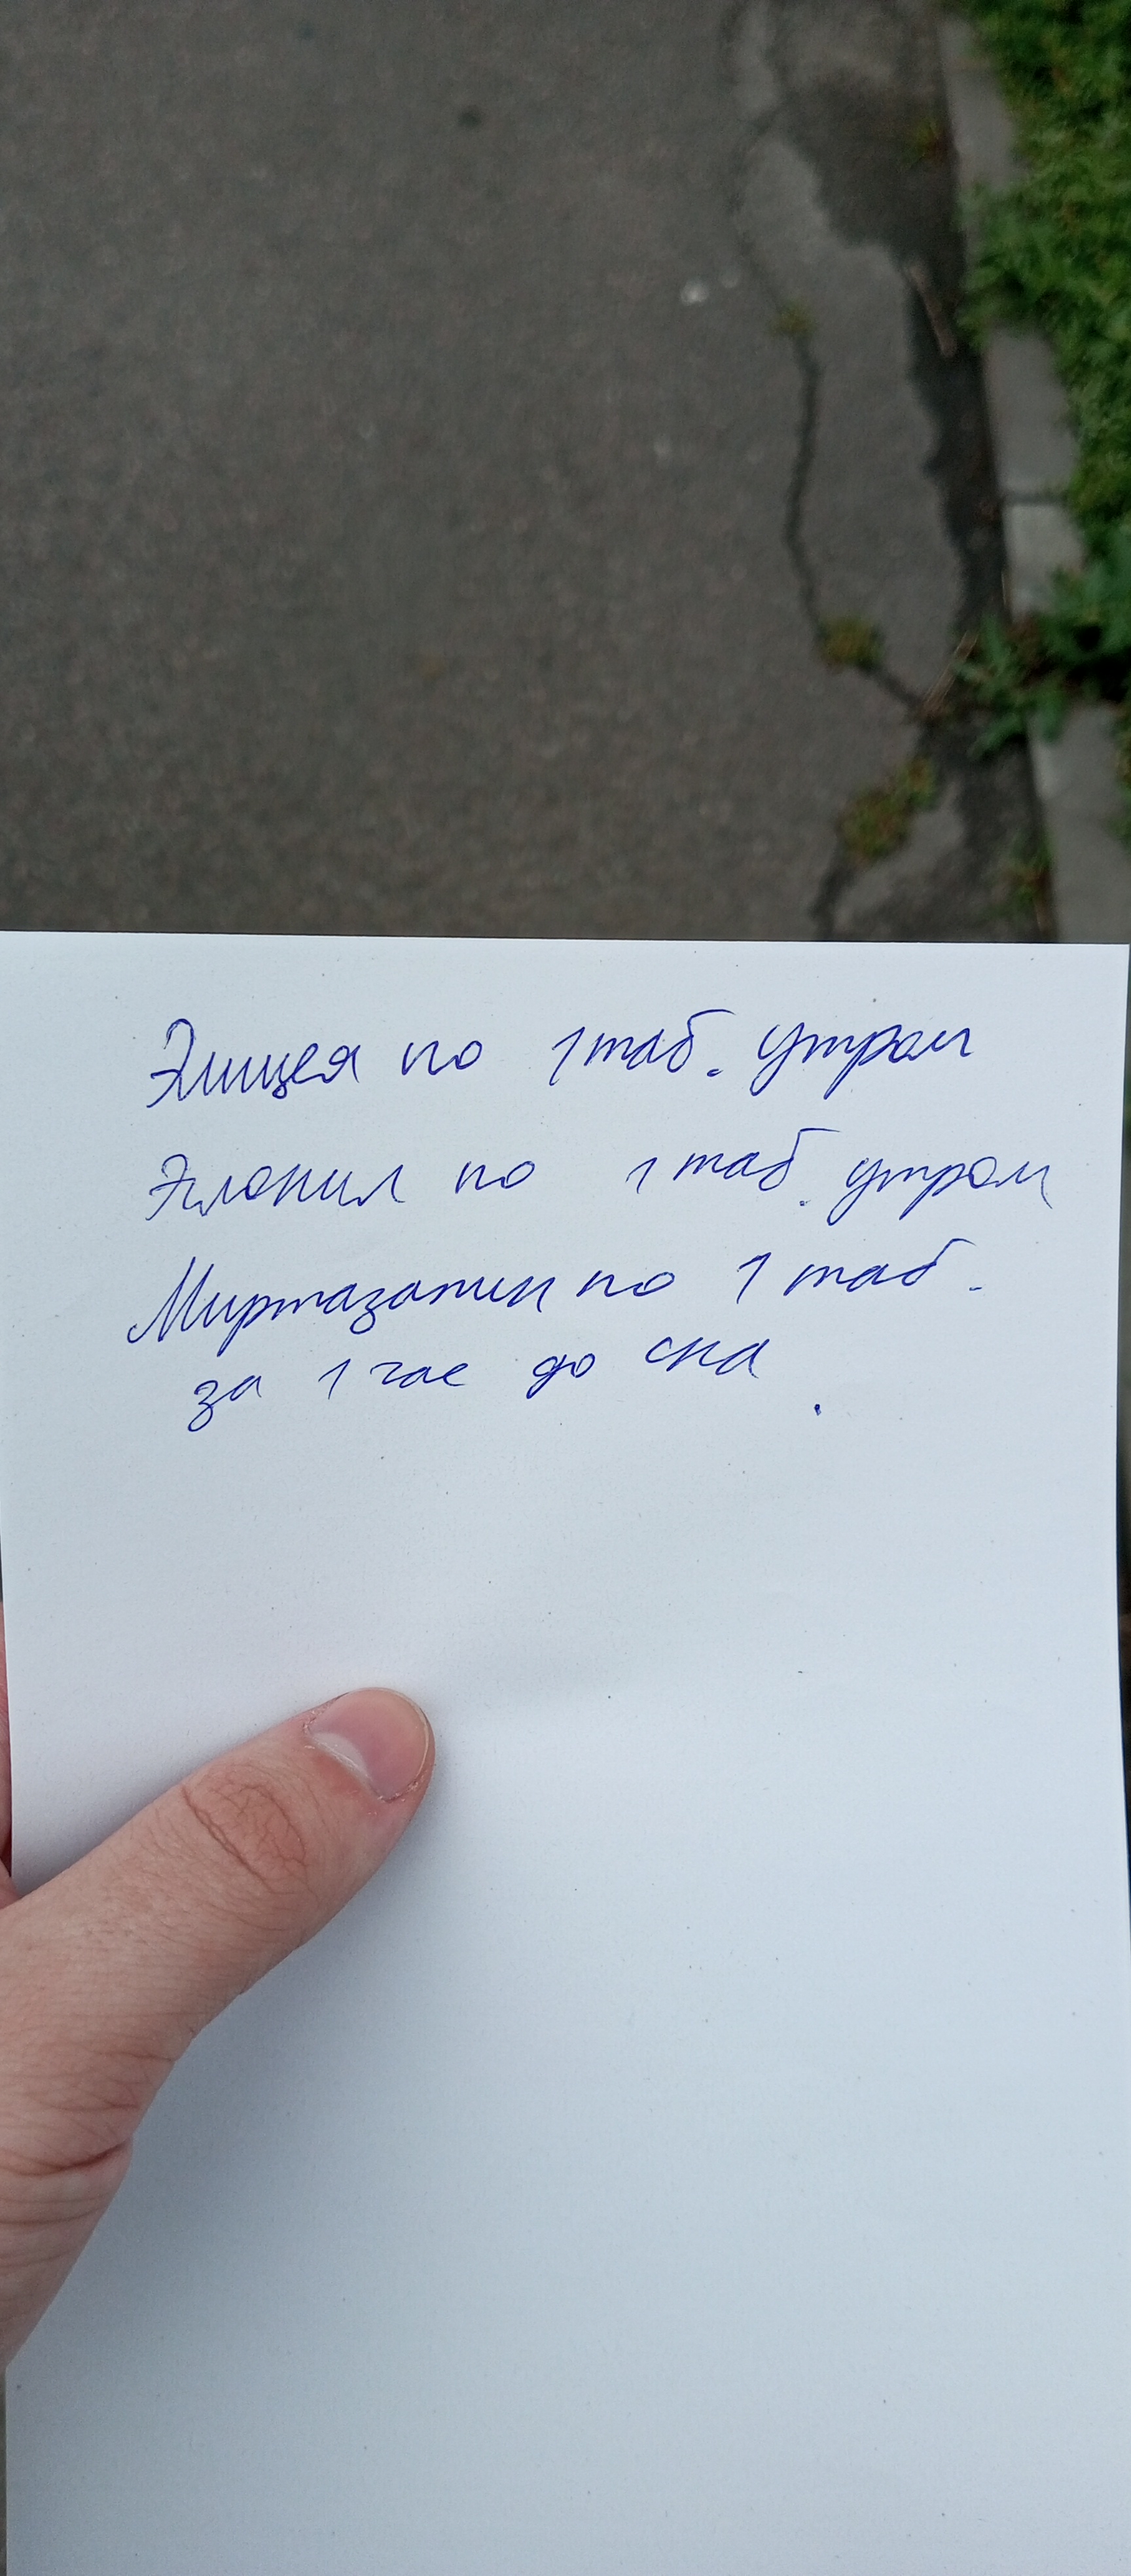 Элицея по 1 таб. утром
Эглонил по 1 таб. утром
Миртазапин по 1 таб.
за 1 час до сна.